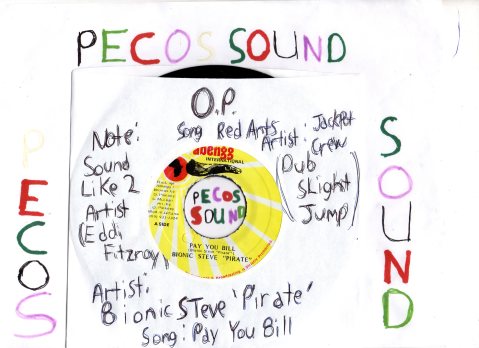 PECOS SOUND
PECOS
SOUND
O.P.
Song Red Ants
Artist: Jackpot
Crew
(Dub
SLight
Jump)
Note:
Sound
Like 2
Artist
(Eddi
Fitzroy)
INTERNATIONAL
PECOS
SOUND
A SIDE
PAY YOU BILL
BIONIC STEVE "PIRATE"
Artist:
Bionic STeve 'Pirate'
Song: Pay You Bill